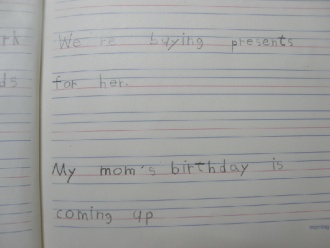 rk
ds
We're buying presents
for her.
My mom's birthday is
coming up